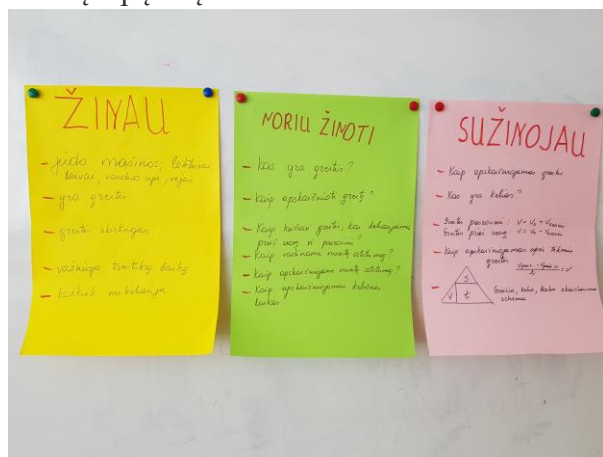 ŽINAU
– juda mašinos, lėktuvai,
laivai, vanduo upe, vėjas
– yra greitis
– greitis skirtingas
– važiuoja tam tikrą laiką
– kažkiek nukeliauja
NORIU ŽINOTI
– Kas yra greitis?
– Kaip apskaičiuoti greitį?
– Kaip keičiasi greitis, kai keliaujama
prieš srovę ir pasroviui?
– Kaip vadiname nueitą atstumą?
– Kaip apskaičiuojame nueitą atstumą?
– Kaip apskaičiuojamas kelionės
laikas.
SUŽINOJAU
– Kaip apskaičiuojamas greitis
– Kas yra kelias?
– Greitis pasroviui: V =
Greitis prieš srovę V =
– Kaip apskaičiuojamas upės tėkmės
greitis
S
V t
Greičio, kelio, laiko skaičiavimo
schema